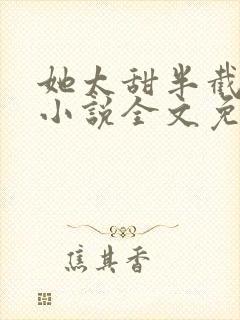 她太甜半截
小说全文免
焦其香